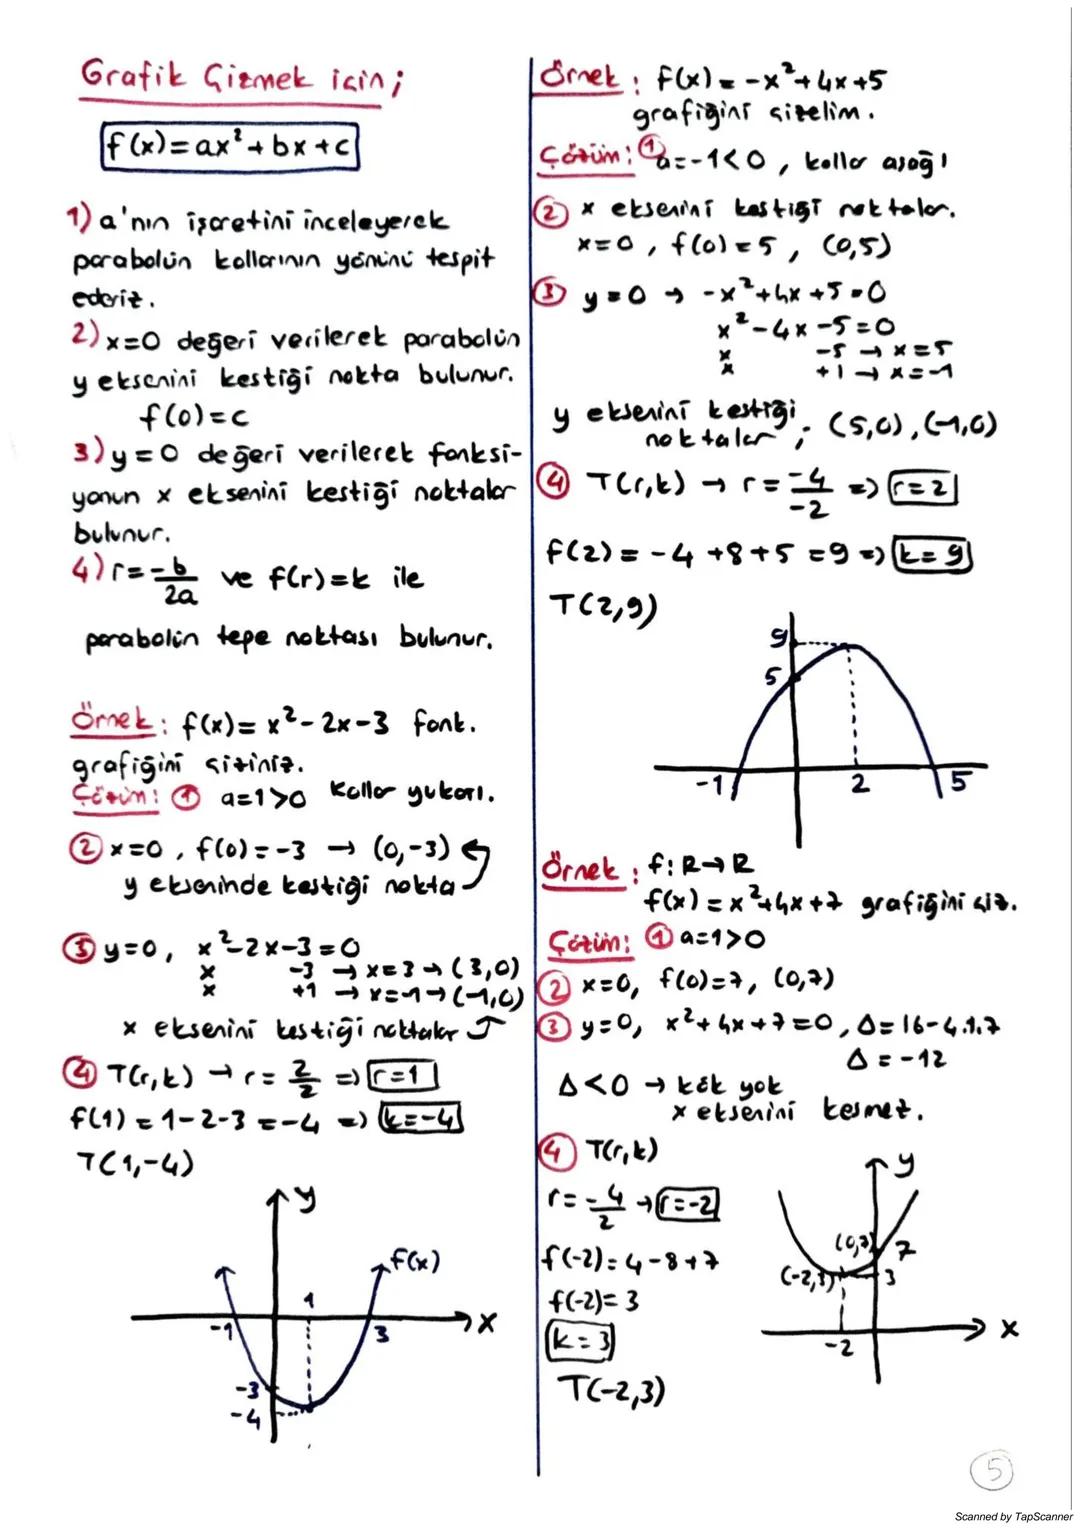 Grafik Çizmek için;
f(x)=ax²+bx+c
1) a'nın işaretini inceleyerek
parabolün kollarının yönünü tespit
ederiz.
2) x=0 değeri verilerek parabolün
y eksenini kestiği nokta bulunur.
f(0)=c
3) y=0 değeri verilerek fonksi-
yonun x eksenini kestiği noktalar
bulunur.
4) r=-b/2a ve f(r)=k ile
parabolün tepe noktası bulunur.
Örnek: f(x)= x²-2x-3 fonk.
grafiğini çiziniz.
Çözüm: ① a=1>0 kollar yukarı.
② x=0, f(0)=-3 → (0,-3)
y ekseninde kestiği nokta
③ y=0, x²-2x-3=0
x -3 → x=3 → (3,0)
x +1 → x=-1 → (-1,0)
x eksenini kestiği noktalar
④ T(r,k) → r= 2/2 => r=1
f(1) = 1-2-3 = -4 => k=-4
T(1,-4)
y
f(x)
1
-1
3
x
-3
-4
Örnek: f(x) = -x²+4x+5
grafiğini çizelim.
Çözüm: ① a=-1<0, kollar aşağı
② x eksenini kestiği noktalar.
x=0, f(0)=5, (0,5)
③ y=0 → -x²+4x+5=0
x²-4x-5=0
x -5 → x=5
x +1 → x=-1
y eksenini kestiği
noktalar; (5,0),(-1,0)
④ T(r,k) → r= -4/-2 => r=2
f(2) = -4+8+5 =9 => k=9
T(2,9)
9
5
-1
2
5
Örnek: f:R→R
f(x) = x²+4x+7 grafiğini çiz.
Çözüm: ① a=1>0
② x=0, f(0)=7, (0,7)
③ y=0, x²+4x+7=0, Δ=16-4.1.7
Δ=-12
Δ<0 → kök yok
x eksenini kesmez.
④ T(r,k)
r= -4/2 → r=-2
f(-2)=4-8+7
f(-2)=3
k=3
T(-2,3)
y
(0,7)
7
(-2,3)
3
-2
x
5
Scanned by TapScanner